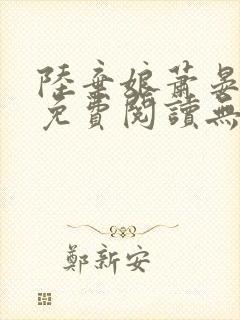 陸棄娘蕭晏
免費閱讀無
鄭新安